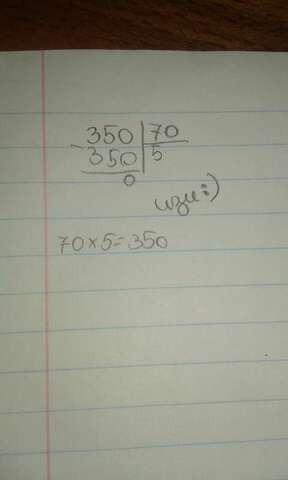 350 70
- 350 5
0
изи:)
70×5=350